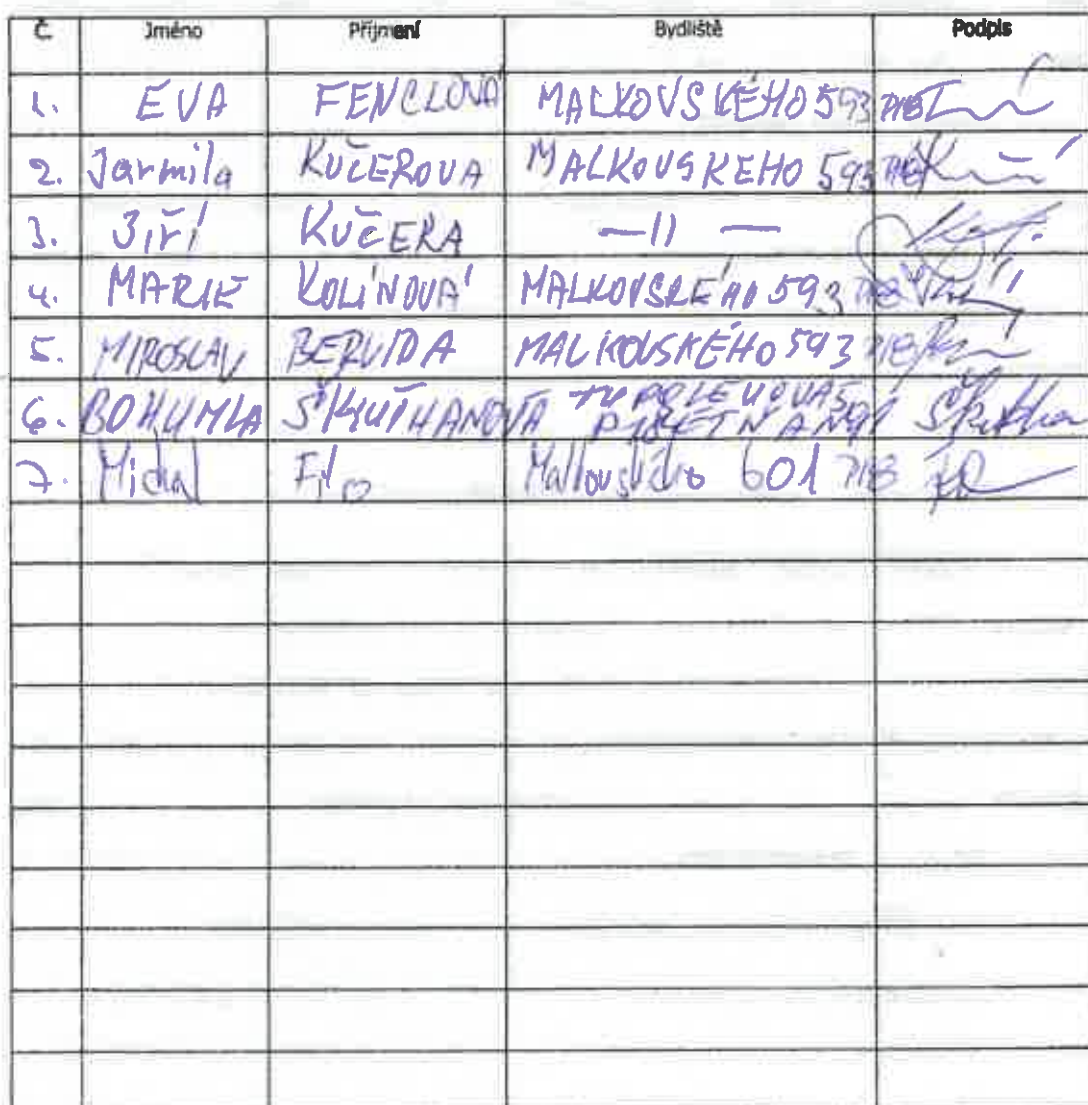 Č. Jméno Příjmení Bydliště Podpis
1. EVA FENCLOVÁ MALKOVSKÉHO 593
2. Jarmila KUČEROVA MALKOVSKEHO 593
3. Jiří KUČERA —11—
4. MARIE KOLÍNOVÁ MALKOVSKÉHO 593
5. MIROSLAV MALKOVSKÉHO 593
6. BOHUMILA
7. Michal Malkovského 601